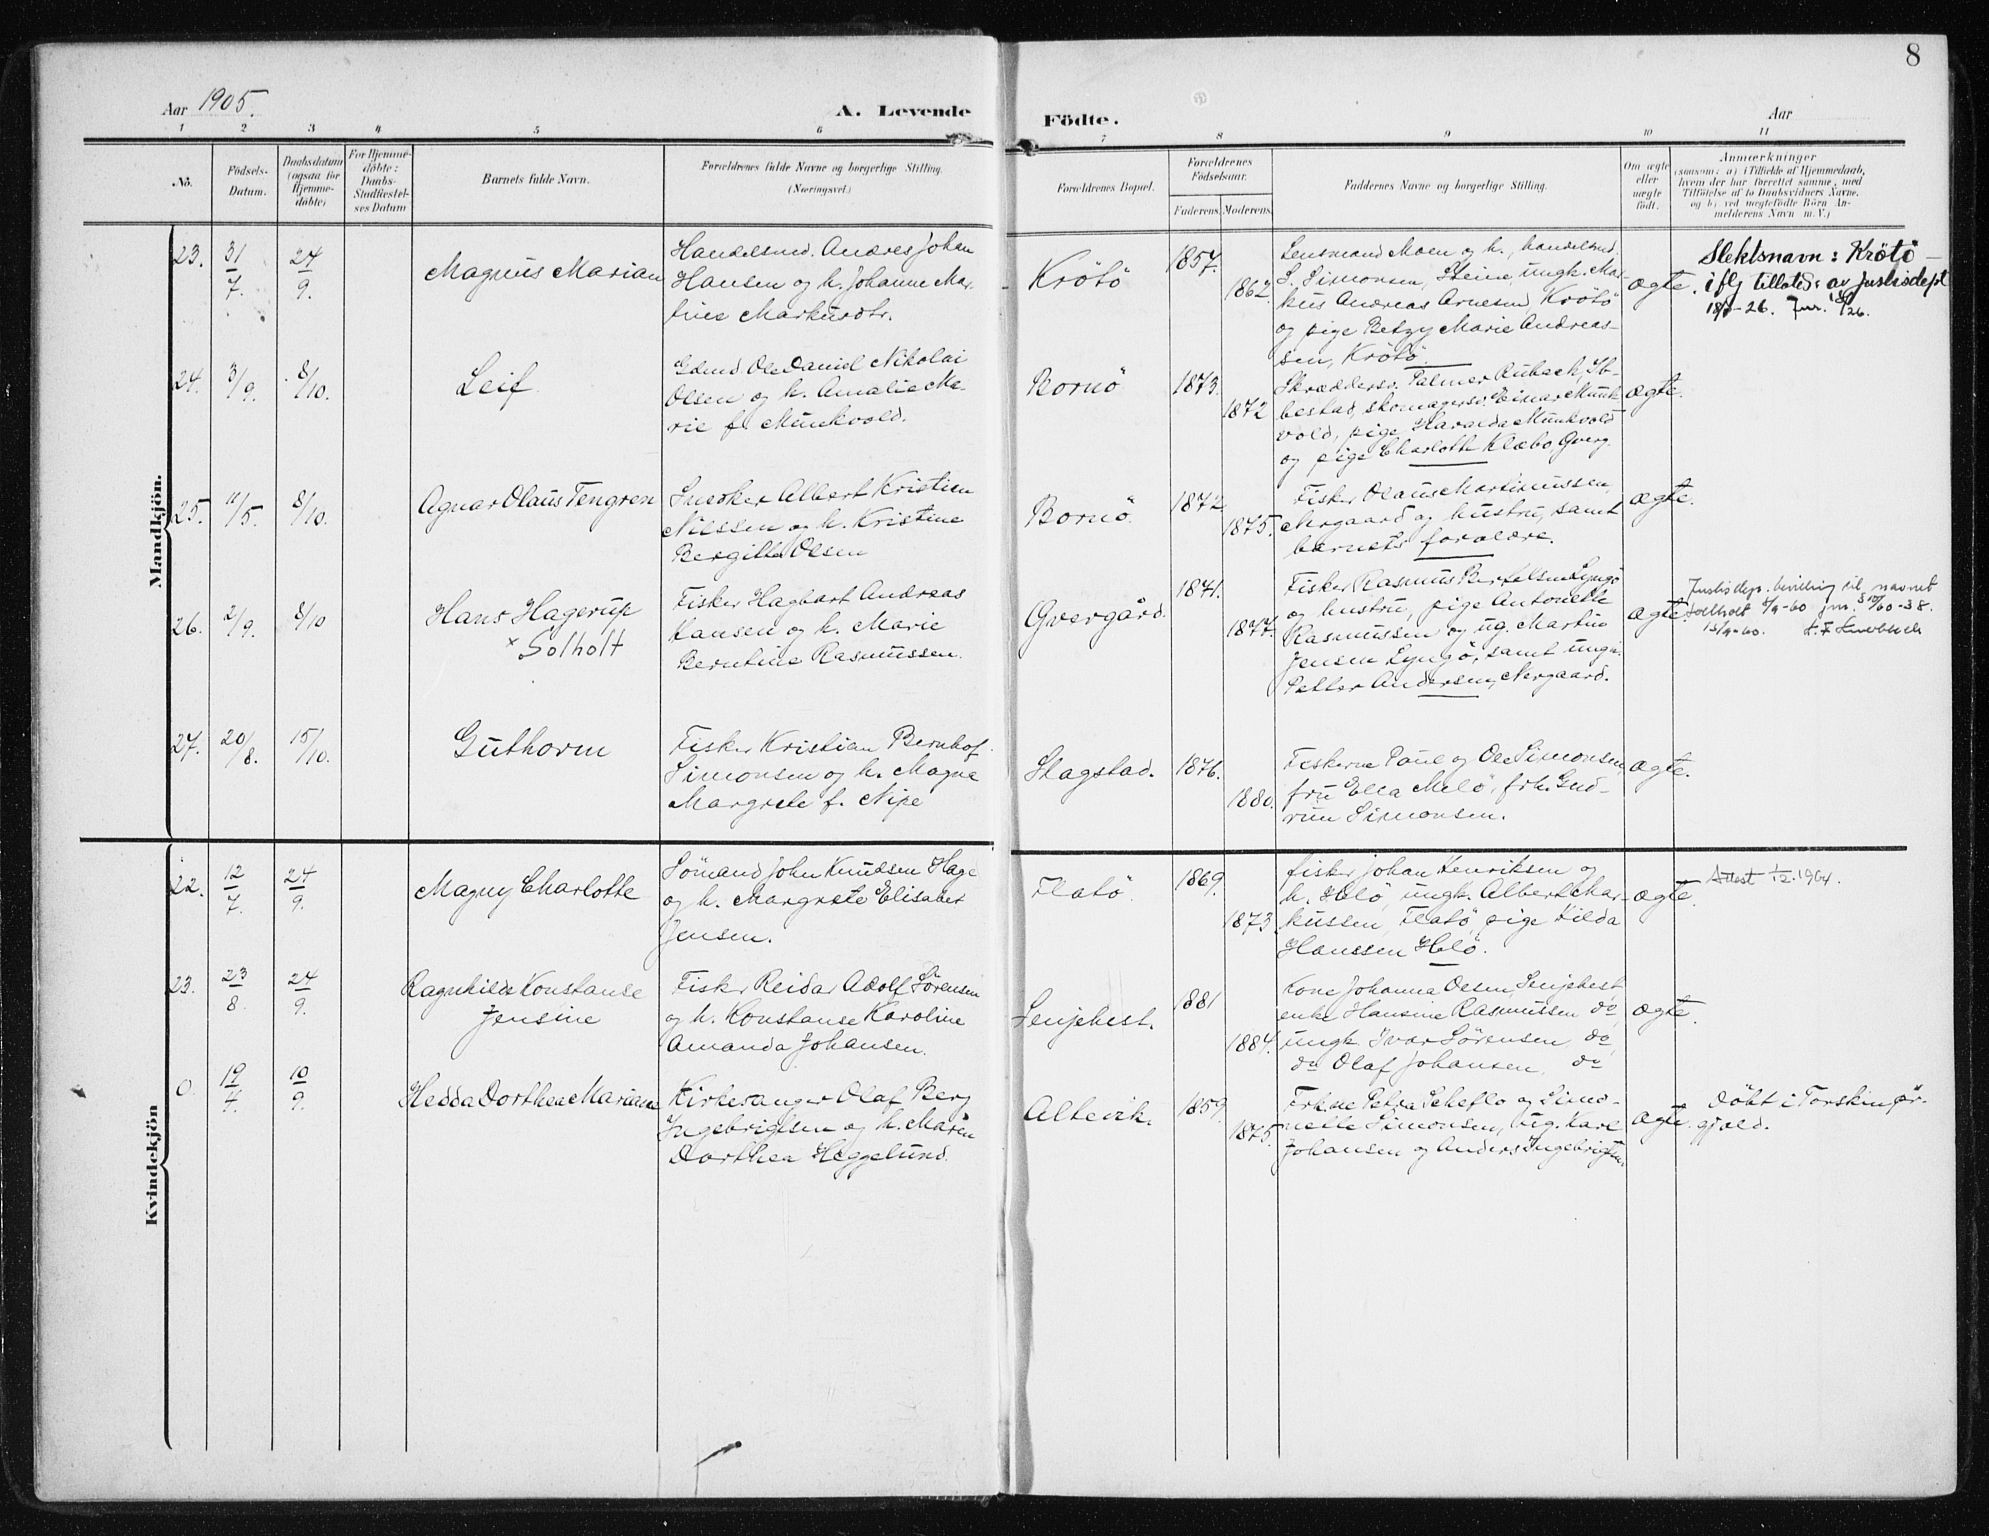 8
Aar 1905.
A. Levende Födte.
Aar
1 2 3 4 5 6 7 8 9 10 11
No.
Födsels-
Datum.
Daabsdatum
(ogsaa for
Hjemme-
döbte)
For Hjemme-
döbte:
Daabs-
Stadfæstel-
ses Datum
Barnets fulde Navn.
Forældrenes fulde Navne og borgerlige Stilling.
(Næringsvei.)
Forældrenes Bopæl.
Forældrenes
Födselsaar.
Faderens. Moderens.
Faddernes Navne og borgerlige Stilling.
Om ægte
eller
uægte
födt.
Anmærkninger
(saasom: a) i Tilfælde af Hjemmedaab,
hvem der har forrettet samme, med
Tilföielse af to Daabsvidners Navne,
og b) ved uægtefödte Börn An-
melderens Navn m. V.)
Mandkjön.
23.
31/7.
24/9.
Magnus Marian
Handelsmd. Andreas Johan
Hansen og h. Johanne Mar-
tine Markusdtr.
Krötö
1857.
1862
Lensmand Moen og h., handelsmd
S. Simonsen, Steine, ungk. Mar-
kus Andreas Arnesen Krötö
og pige Betzy Marie Andreas-
sen, Krötö.
ægte.
Slektsnavn: Krötö
iflg tillatelse av Justisdept
18/3-26. Jnr.
24.
3/9.
8/10.
Leif
Gdmd Ole Daniel Nikolai
Olsen og h. Amalie Ma-
rie f. Munkvold.
Bornö
1873.
1872
Skræddersv. Palmer Aubach, Ib-
bestad, skomagersv. Einar Munk-
vold, pige Haralda Munkvold
og pige Charlotte Klæbo, Gverg.
ægte.
25.
11/5.
8/10.
Agnar Olaus Tengren
Snedker Albert Kristian
Nilssen og h. Kristine
Bergitte Olsen
Bornö.
1872.
1875.
Fisker Olaus Martinussen,
Nergaard og hustru, samt
barnets forældre.
ægte.
26.
2/9.
8/10
Hans Hagerup
× Solholt
Fisker Hagbart Andreas
Hansen og h. Marie
Berntine Rasmussen.
Gvergård.
1871.
1877.
Fisker Rasmus Bertelsen Lyngö
og hustru, pige Antonette
Rasmussen og ug. Martin
Jensen Lyngö, samt ungk.
Petter Andersen, Nergaard.
ægte.
Justisdep. bevilling til navnet
Solholt 8/9-60 jnr.
13/9-60.
27.
20/8.
15/10.
Guthorm
Fisker Kristian Bernhof
Simonsen og h. Magna
Margrete f. Nipe
Skagstad.
1876.
1880.
Fiskerne Paul og Ole Simonsen,
fru Ella Melö, frk. Gud-
run Simonsen.
ægte.
Kvindekjön
22.
12/7.
24/9.
Magny Charlotte
Sömand John Knudsen Hage
og h. Margrete Elisabet
Jensen.
Flatö.
1869.
1873
fisker Johan Henriksen og
h. Helö, ungk. Albert Mar-
kussen, Flatö, pige Hilda
Hanssen Helö.
ægte.
Attest 1/12.1904.
23.
23/8.
24/9.
Ragnhild Konstanse
Jensine
Fisker Reidar Adolf Sörensen
og h. Konstanse Karoline
Amanda Johansen.
Senjehest.
1881
1884.
Kone Johanna Olsen, Senjehest
enke Hansine Rasmussen do,
ungk. Ivar Sörensen do,
do Olaf Johansen, do
ægte.
0.
19/4.
10/9.
Hedda Dorthea Mariane
Kirkesanger Olaf Berg
Ingebrigtsen og h. Maren
Dorthea Heggelund.
Altevik.
1859.
1875.
Frkne Petra Scheflo og
Simonsen, ug. Karl
Johansen og Anders Ingebrigtsen.
ægte.
Döbt i Torsken pr.
gjeld.